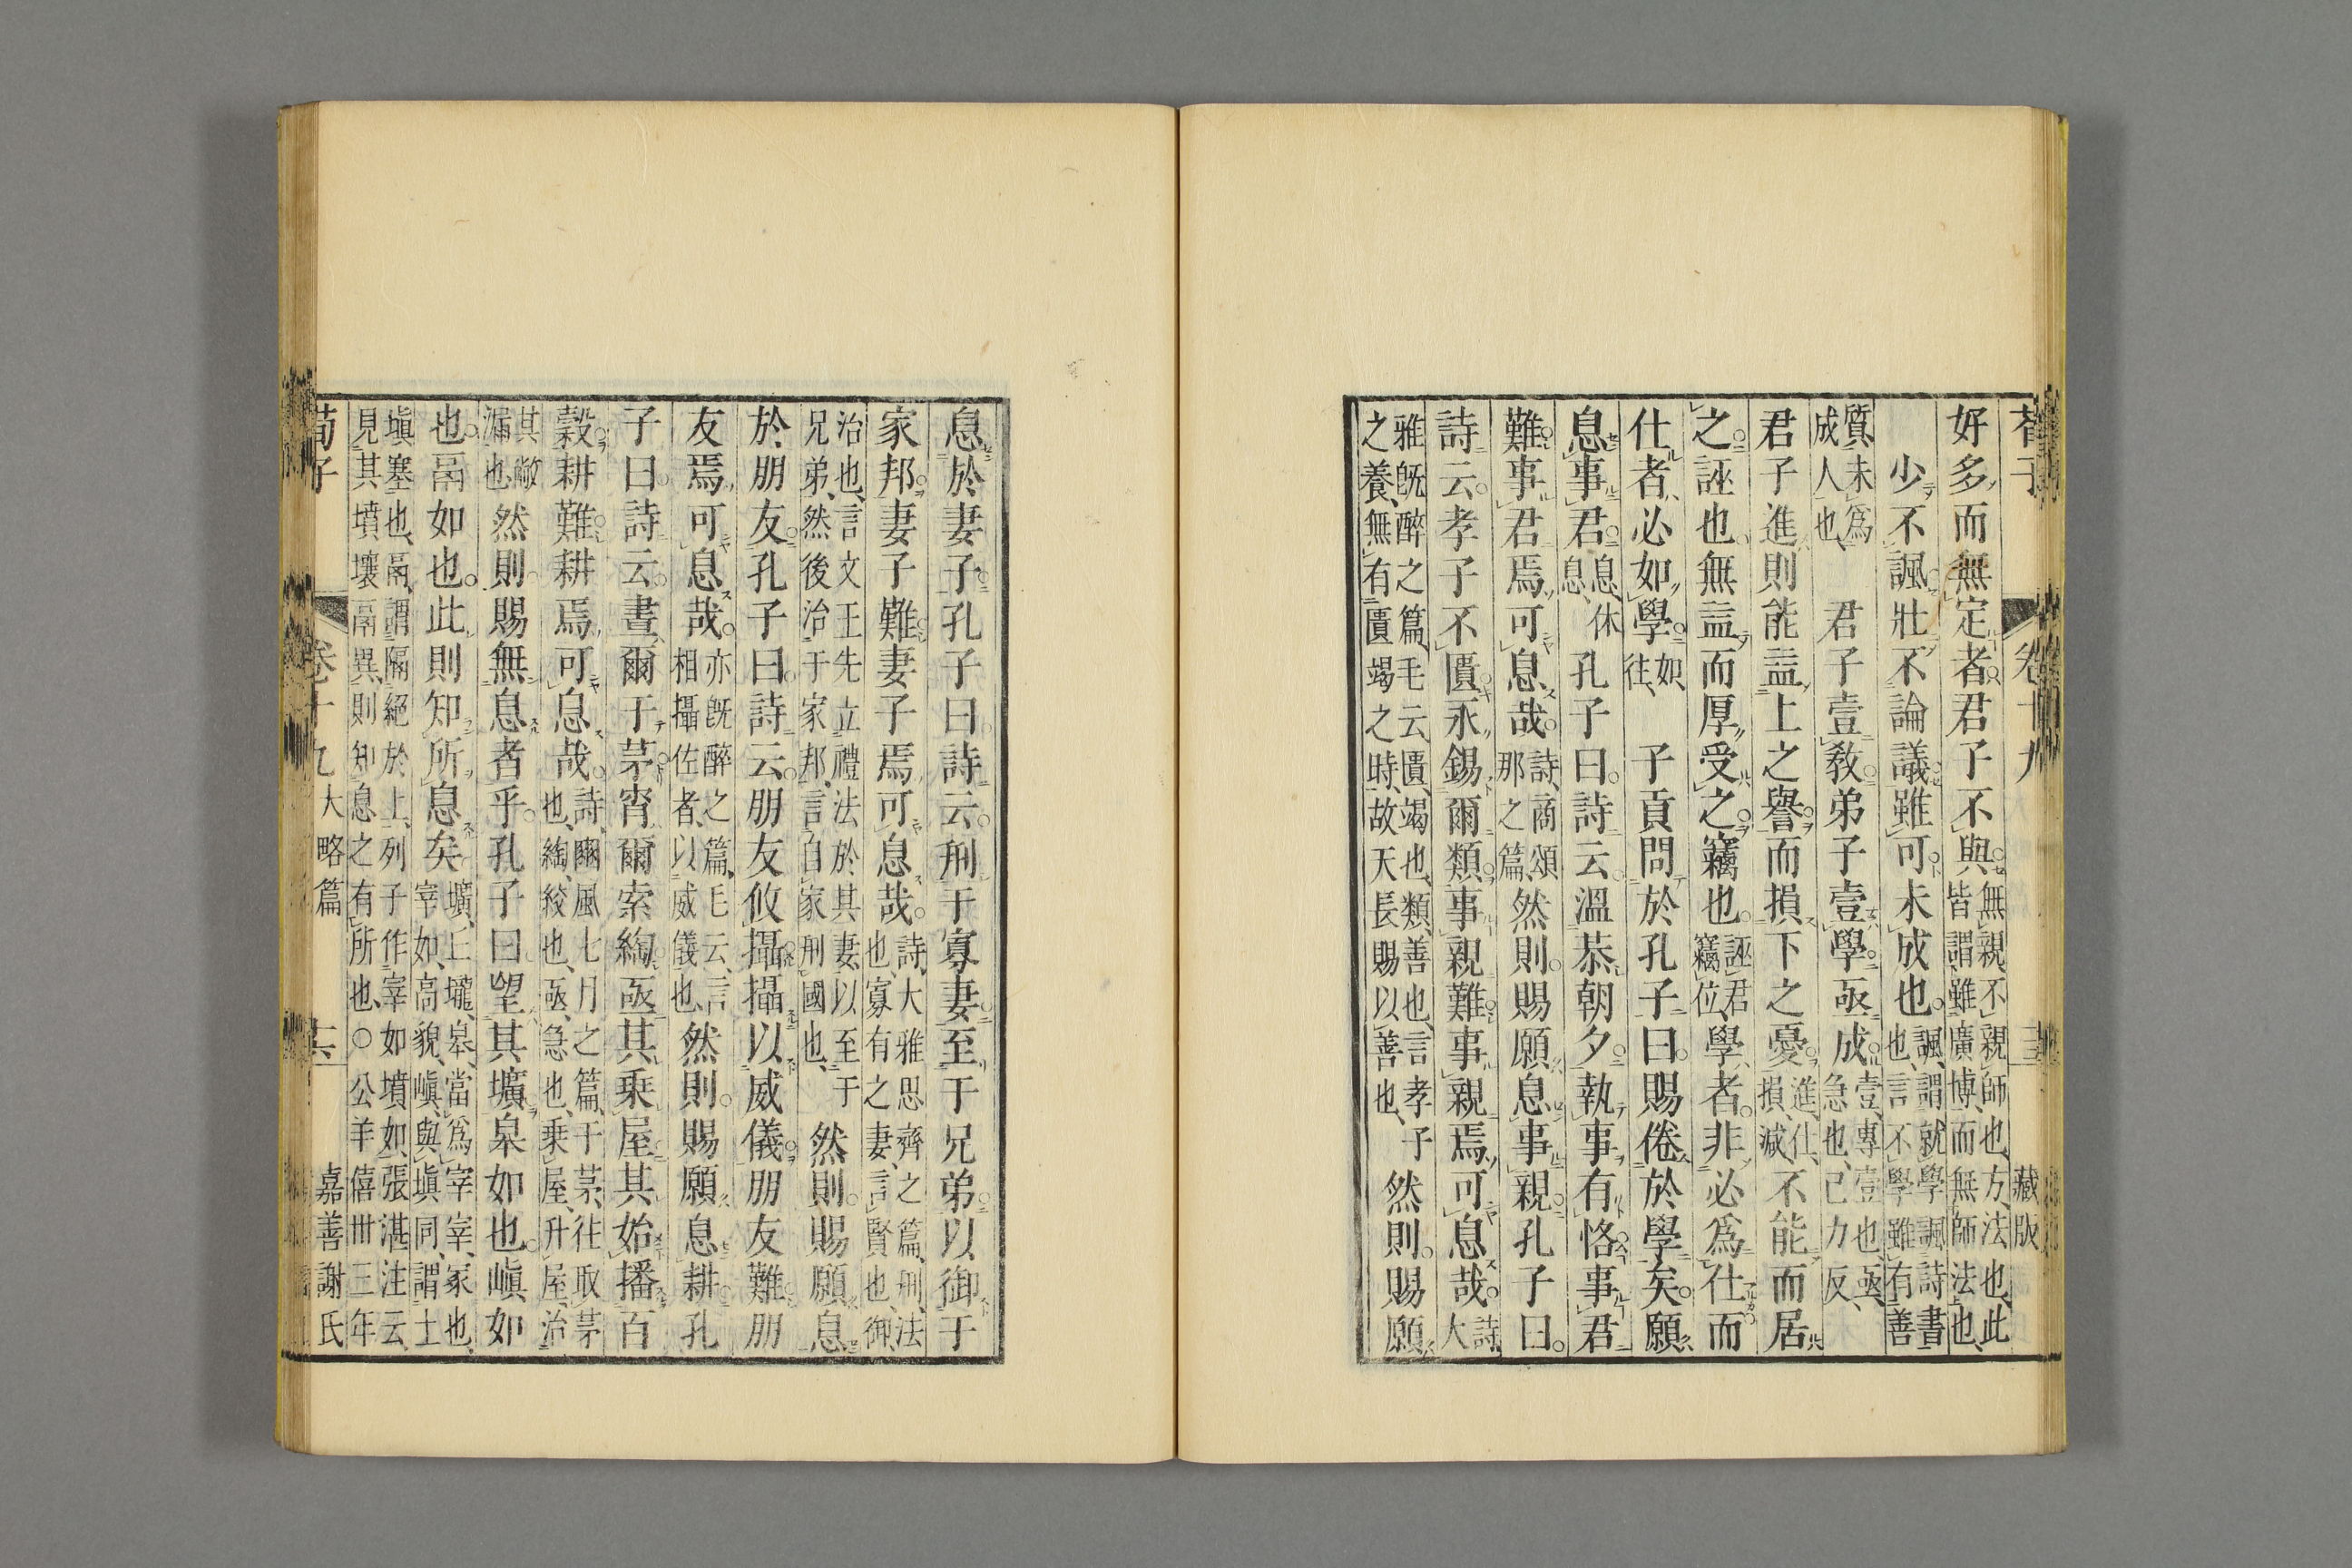 荀子 卷十九 藏版
好多而無定者君子不與無親不親師也方法也此皆謂雖廣博而無師法也
少不諷壯不論議雖可未成也諷謂就學諷詩書也言不學雖有善
質未爲成人也 君子壹敎弟子壹學亟成壹專壹也亟急也己力反
君子進則能益上之譽而損下之憂進仕損減不能而居
之誣也無益而厚受之竊也誣君竊位學者非必爲仕而
仕者必如學如往 子貢問於孔子曰賜倦於學矣願
息事君息休息孔子曰詩云溫恭朝夕執事有恪事君
難事君焉可息哉詩商頌那之篇然則賜願息事親孔子曰
詩云孝子不匱永錫爾類事親難事親焉可息哉詩大
雅旣醉之篇毛云匱竭也類善也言孝子之養無有匱竭之時故天長賜以善也然則賜願
息於妻子孔子曰詩云刑于寡妻至于兄弟以御于
家邦妻子難妻子焉可息哉詩大雅思齊之篇刑法也寡有之妻言賢也御
治也言文王先立禮法於其妻以至于兄弟然後治于家邦言自家刑國也然則賜願息
於朋友孔子曰詩云朋友攸攝攝以威儀朋友難朋
友焉可息哉亦旣醉之篇毛云言相攝佐者以威儀也然則賜願息耕孔
子曰詩云晝爾于茅宵爾索綯亟其乗屋其始播百
穀耕難耕焉可息哉詩豳風七月之篇于茅往取茅也綯絞也亟急也乗屋升屋治
其敝漏也然則賜無息者乎孔子曰望其壙皋如也嵮如
也鬲如也此則知所息矣壙丘壠皋當爲宰宰冢也宰如高貌嵮與塡同謂土
塡塞也鬲謂隔絕於上列子作宰如墳如張湛注云見其墳壤鬲異則知息之有所也○公羊僖卅三年
荀子 卷十九 大略篇 嘉善謝氏